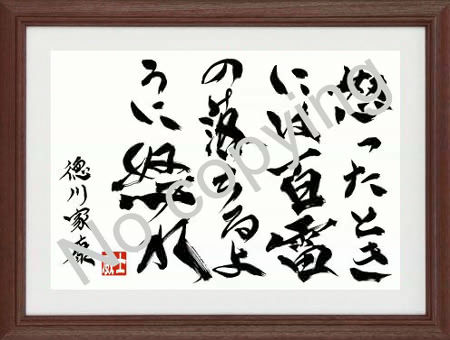 怒ったとき
には百雷
の落ちるよ
うに怒れ
徳川家康
No copying